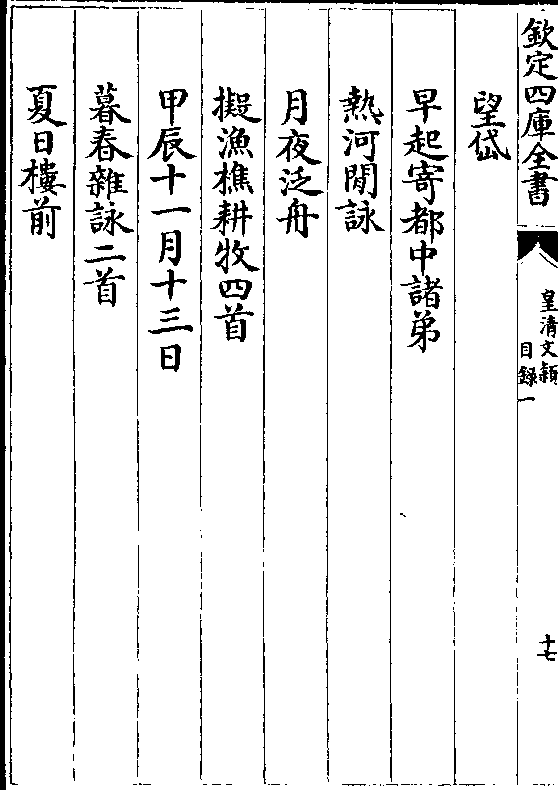 欽定四庫全書
皇清文穎
目録一
十七
望岱
早起寄都中諸弟
熱河閒詠
月夜泛舟
擬漁樵耕牧四首
甲辰十一月十三日
暮春雜詠二首
夏日樓前